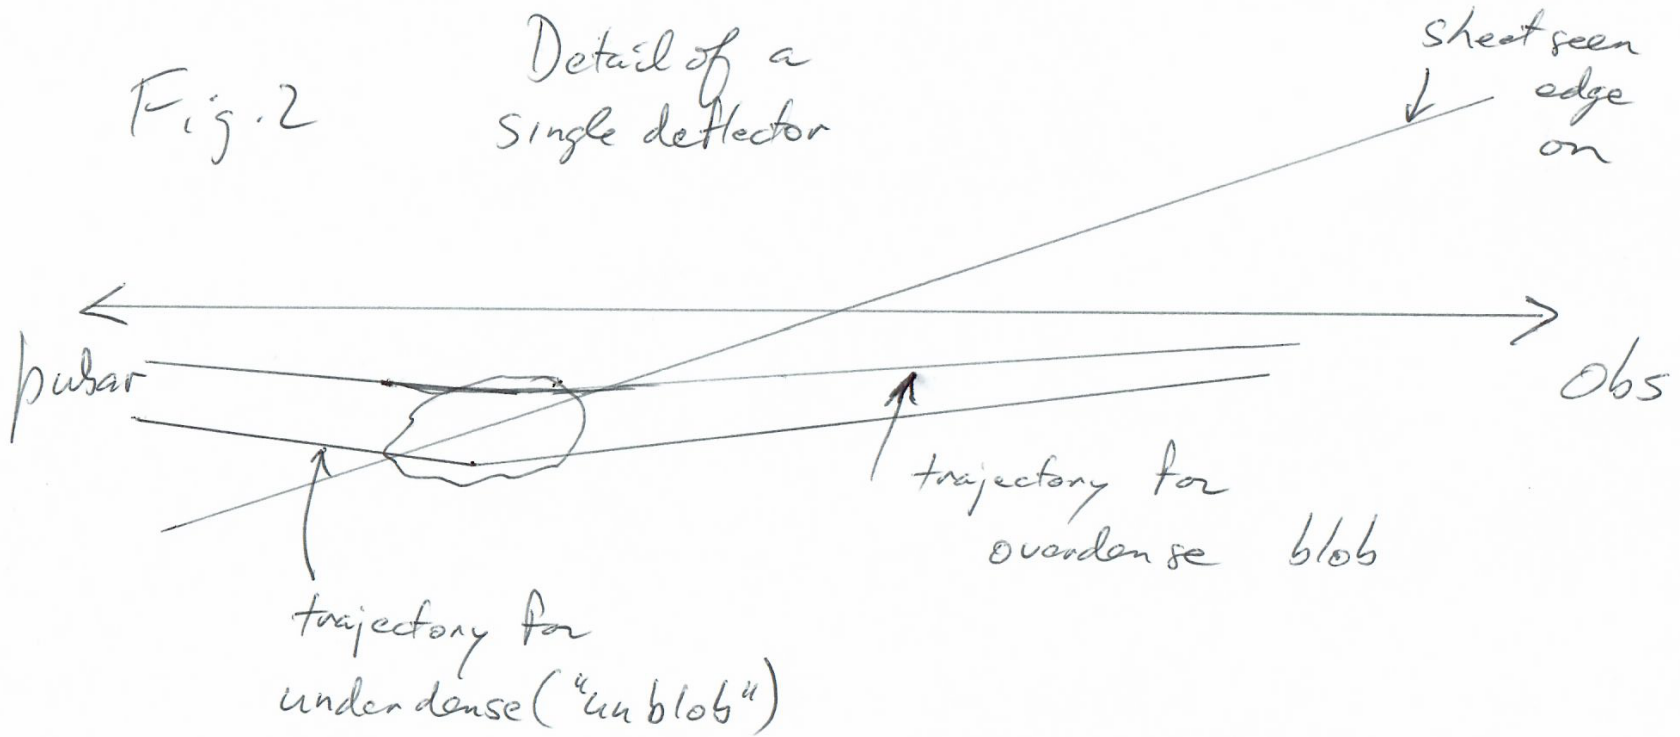 Fig. 2
Detail of a
single deflector
sheet seen
edge
on
pulsar
obs
trajectory for
overdense blob
trajectory for
underdense ("unblob")